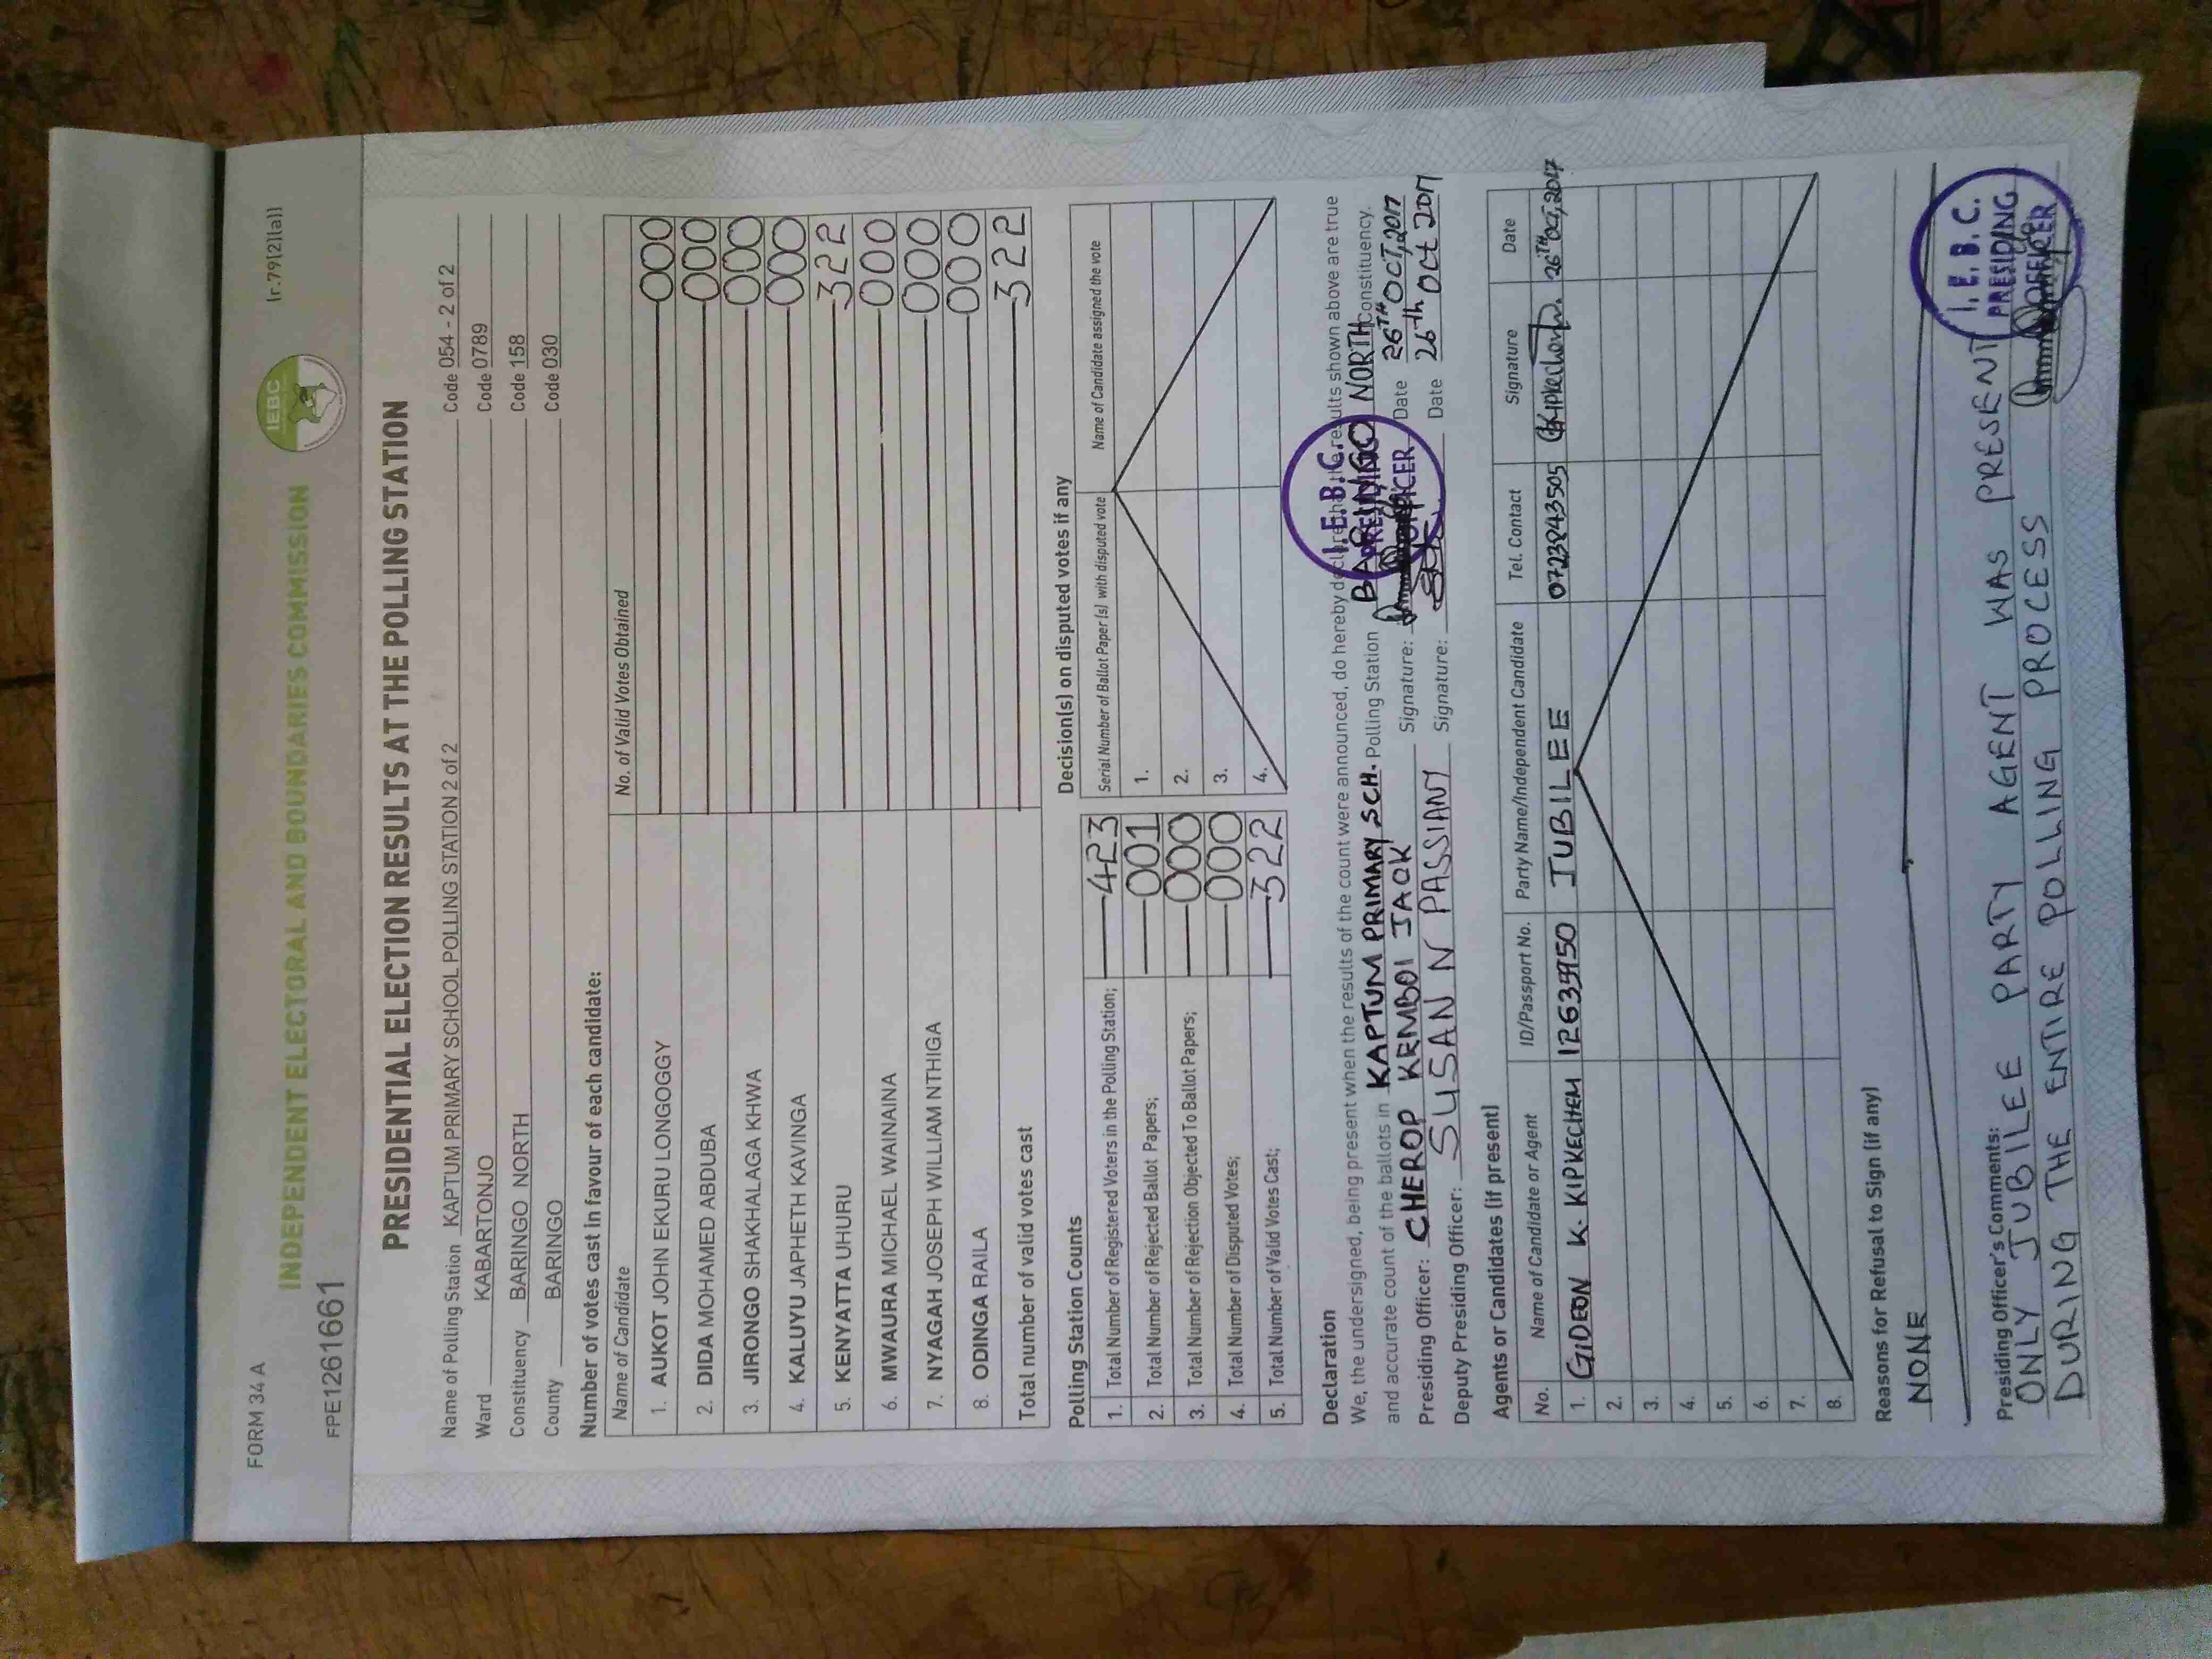 FORM 34 A
(r.79(2)(a))
IEBC
INDEPENDENT ELECTORAL AND BOUNDARIES COMMISSION
FPE1261661
PRESIDENTIAL ELECTION RESULTS AT THE POLLING STATION
Name of Polling Station KAPTUM PRIMARY SCHOOL POLLING STATION 2 of 2 Code 054 - 2 of 2
Ward KABARTONJO Code 0789
Constituency BARINGO NORTH Code 158
County BARINGO Code 030
Number of votes cast in favour of each candidate:
Name of Candidate No. of Valid Votes Obtained
1. AUKOT JOHN EKURU LONGOGGY 000
2. DIDA MOHAMED ABDUBA 000
3. JIRONGO SHAKHALAGA KHWA 000
4. KALUYU JAPHETH KAVINGA 000
5. KENYATTA UHURU 322
6. MWAURA MICHAEL WAINAINA 000
7. NYAGAH JOSEPH WILLIAM NTHIGA 000
8. ODINGA RAILA 000
Total number of valid votes cast 322
Polling Station Counts
1. Total Number of Registered Voters in the Polling Station; 423
2. Total Number of Rejected Ballot Papers; 001
3. Total Number of Rejection Objected To Ballot Papers; 000
4. Total Number of Disputed Votes; 000
5. Total Number of Valid Votes Cast; 322
Decision(s) on disputed votes if any
Serial Number of Ballot Paper (s) with disputed vote Name of Candidate assigned the vote
1.
2.
3.
4.
Declaration
We, the undersigned, being present when the results of the count were announced, do hereby declare that the results shown above are true
and accurate count of the ballots in KAPTUM PRIMARY SCH. Polling Station BARINGO NORTH Constituency.
Presiding Officer: CHEROP KEMBOI JACK Signature: Date 26TH OCT, 2017
Deputy Presiding Officer: SUSAN N PASSIANY Signature: Date 26th Oct 2017
I.E.B.C.
PRESIDING
OFFICER
Agents or Candidates (if present)
No. Name of Candidate or Agent ID/Passport No. Party Name/Independent Candidate Tel. Contact Signature Date
1. GIDEON K. KIPKECHEM 12639950 JUBILEE 0723243505 26TH OCT, 2017
2.
3.
4.
5.
6.
7.
8.
Reasons for Refusal to Sign (if any)
NONE
Presiding Officer's Comments:
ONLY JUBILE PARTY AGENT WAS PRESENT
DURING THE ENTIRE POLLING PROCESS
I.E.B.C.
PRESIDING
OFFICER